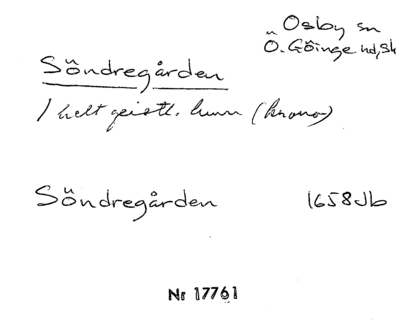 Osby sn
Ö. Göinge hd, Sk
Söndregården
1 helt geistl. hmn (krono)
Söndregården 1658 Jb
Nr 17761